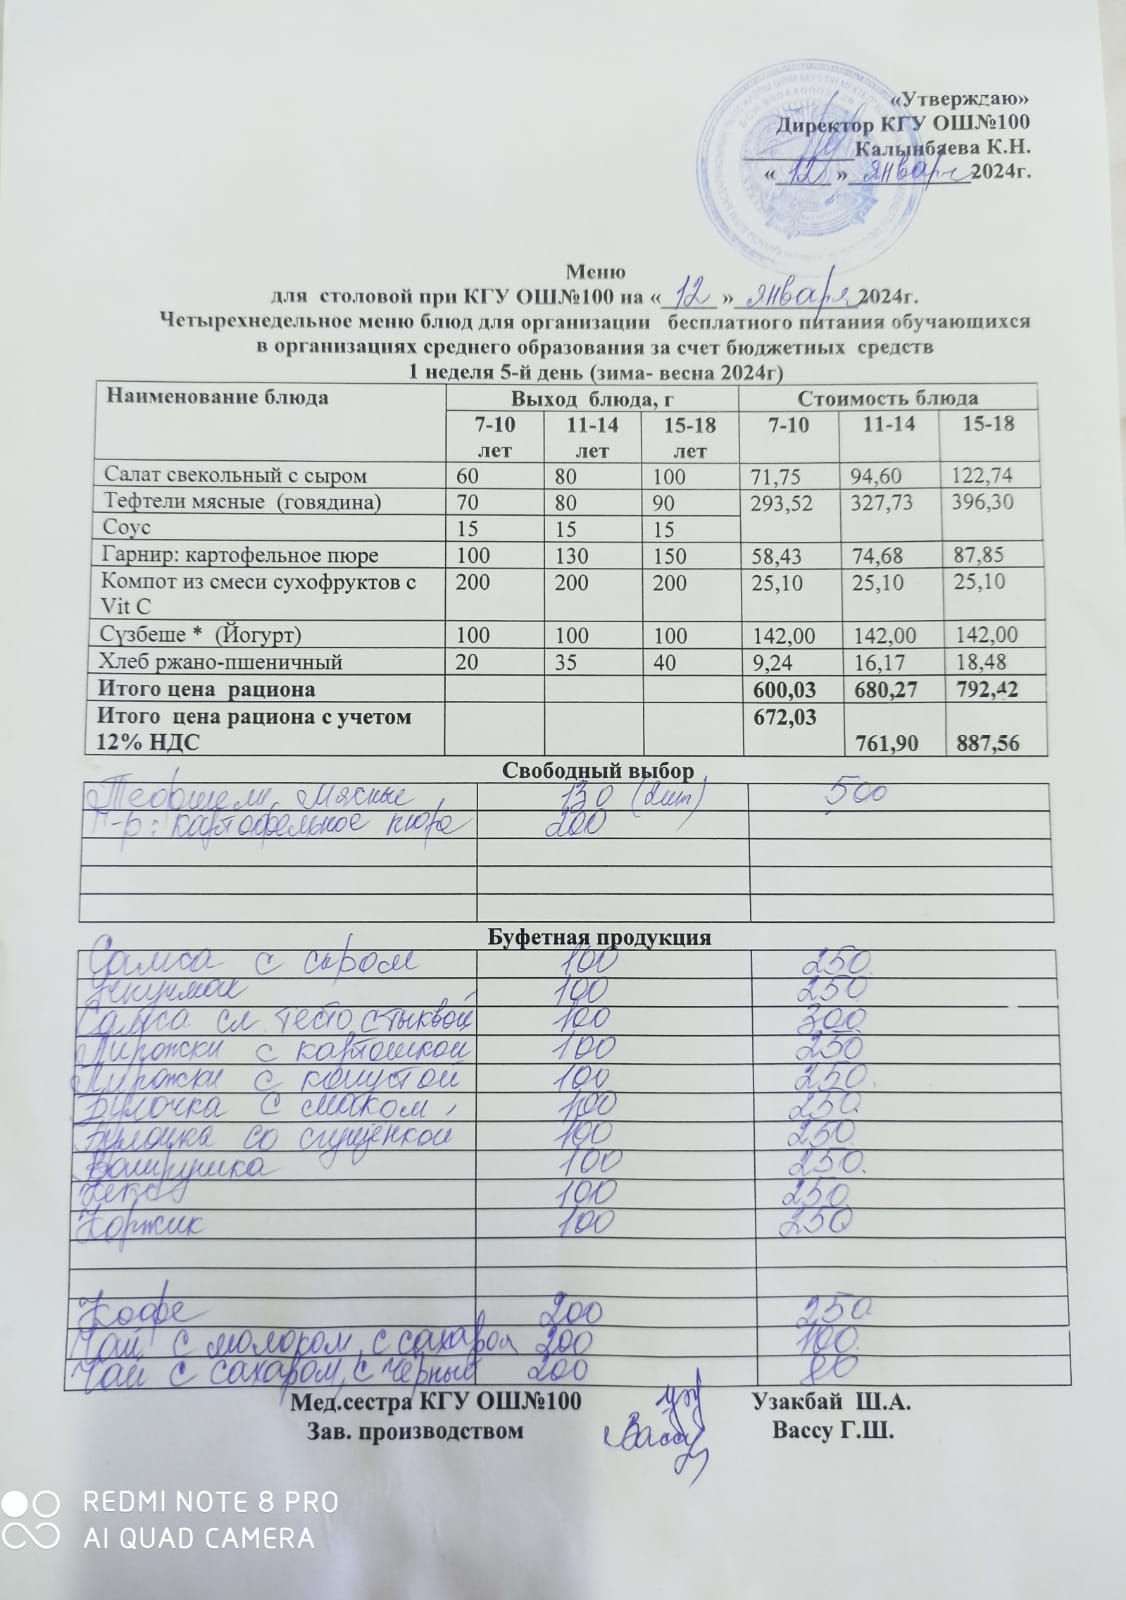 «Утверждаю»
Директор КГУ ОШ№100
__________Калынбаева К.Н.
«_12_»_января_2024г.
Меню
для столовой при КГУ ОШ№100 на «_12_»_января_2024г.
Четырехнедельное меню блюд для организации бесплатного питания обучающихся
в организациях среднего образования за счет бюджетных средств
1 неделя 5-й день (зима- весна 2024г)
Наименование блюда Выход блюда, г Стоимость блюда
7-10 лет 11-14 лет 15-18 лет 7-10 11-14 15-18
Салат свекольный с сыром 60 80 100 71,75 94,60 122,74
Тефтели мясные (говядина) 70 80 90 293,52 327,73 396,30
Соус 15 15 15
Гарнир: картофельное пюре 100 130 150 58,43 74,68 87,85
Компот из смеси сухофруктов с
Vit C 200 200 200 25,10 25,10 25,10
Сүзбеше * (Йогурт) 100 100 100 142,00 142,00 142,00
Хлеб ржано-пшеничный 20 35 40 9,24 16,17 18,48
Итого цена рациона 600,03 680,27 792,42
Итого цена рациона с учетом
12% НДС 672,03 761,90 887,56
Свободный выбор
Тефтели мясные 130 (2шт) 500
Г-р: картофельное пюре 200
Буфетная продукция
Самса с сыром 100 250
100 250
Самса сл тесто с тыквой 100 300
Пирожки с картошкой 100 250
Пирожки с капустой 100 250
Булочка с маком 100 250
Булочка со сгущенкой 100 250
Ватрушка 100 250
100 250
Коржик 100 250
Кофе 200 250
Чай с молоком, с сахаром 200 100
Чай с сахаром, с черный 200 80
Мед.сестра КГУ ОШ№100 Узакбай Ш.А.
Зав. производством Вассу Вассу Г.Ш.
REDMI NOTE 8 PRO
AI QUAD CAMERA